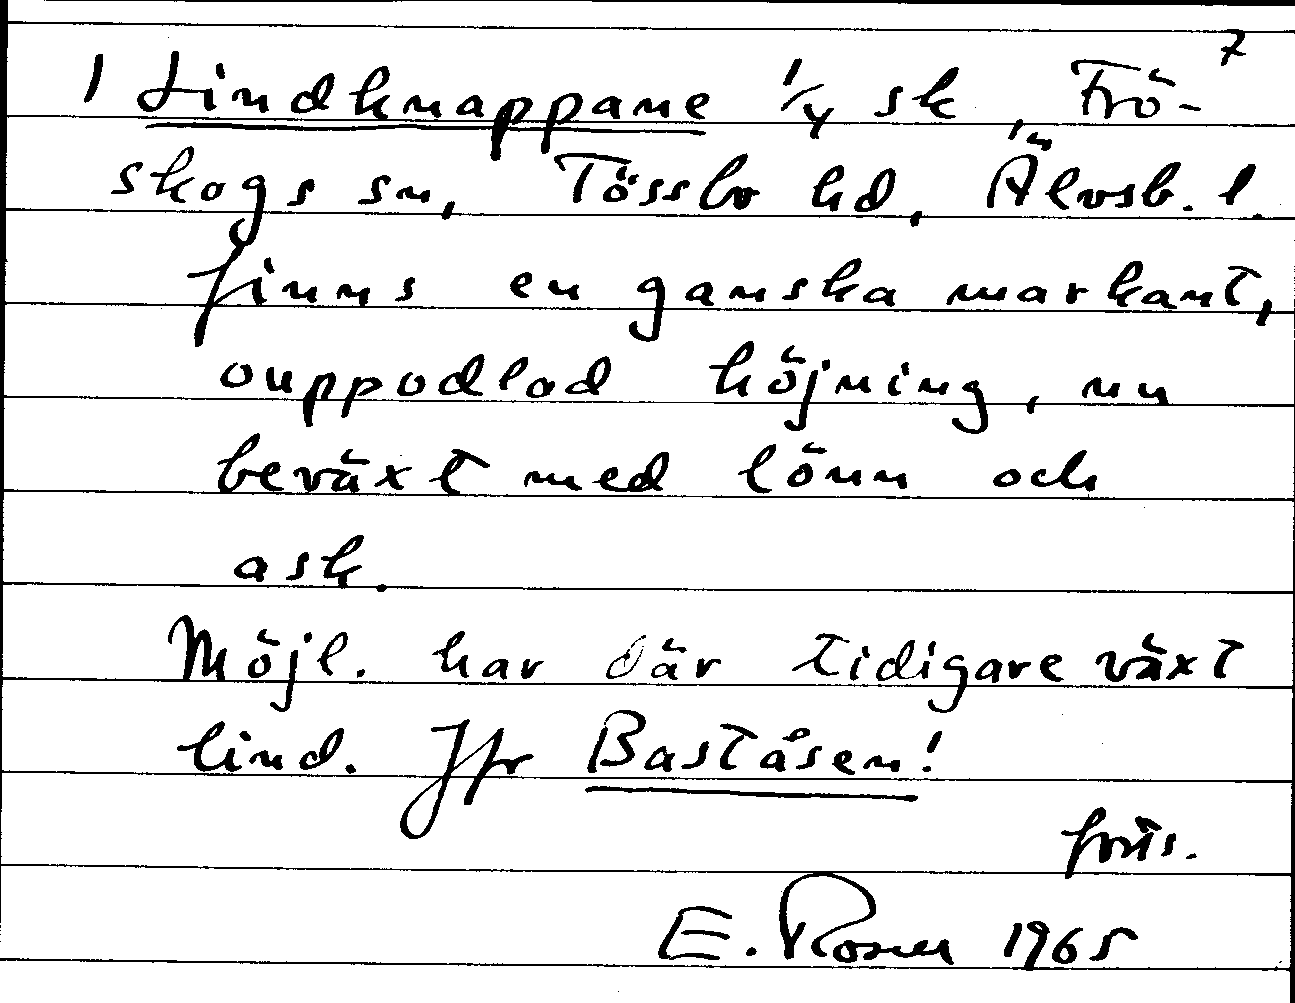 7
I Lindknappane 1/4 sk, Frö-
skogs sn, Tössbo hd, Älvsb. l.
finns en ganska markant,
ouppodlad höjning, nu
beväxt med lönn och
ask.
Möjl. har där tidigare växt
lind. Jfr Baståsen!
E. Rosell 1965